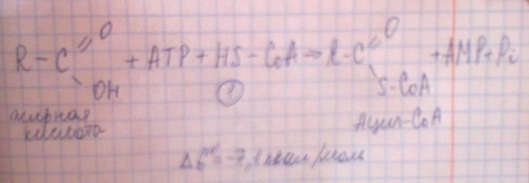 R-C=O
OH + ATP + HS-CoA → R-C=O
S-CoA + AMP + Pi
жирная
кислота
1
Ацил-CoA
ккал/моль